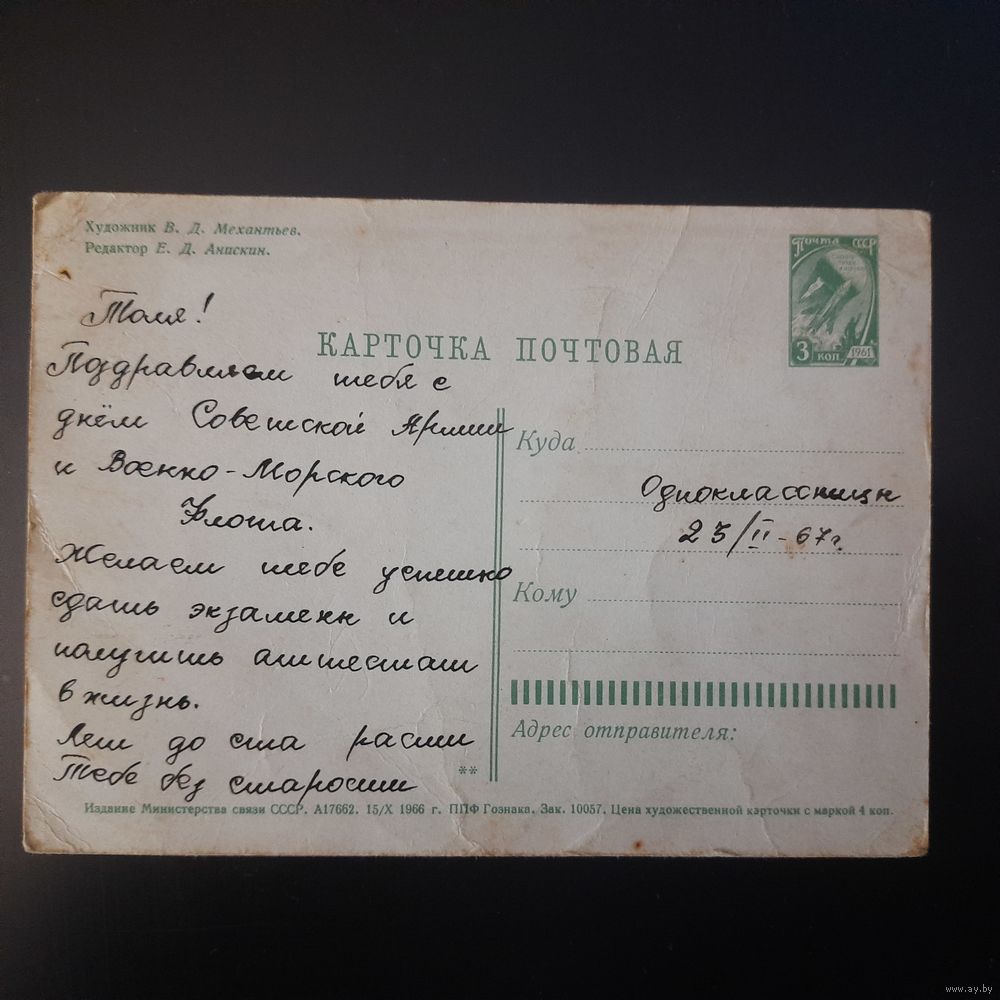 Художник В. Д. Механтьев.
Редактор Е. Д. Анискин.
Почта СССР
3 коп.
1961
КАРТОЧКА ПОЧТОВАЯ
Толя!
Поздравляем тебя с
днём Советской Армии
и Военно-Морского
Флота.
Желаем тебе успешно
сдать экзамены и
получить аттестат
в жизнь.
Лет до ста расти
Тебе без старости
Куда
Одноклассницы
23/II-67г.
Кому
Адрес отправителя:
**
Издание Министерства связи СССР. А17662. 15/X 1966 г. ППФ Гознака. Зак. 10057. Цена художественной карточки с маркой 4 коп.
www.ay.by